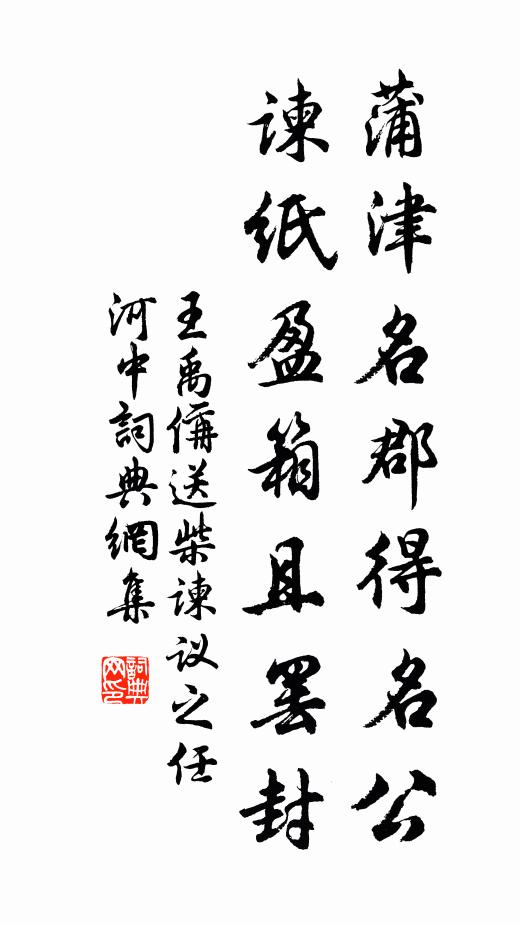 蒲津名郡得名公
諫紙盈箱且罢封
王禹偁送柴諫议之任
河中詞典網集
詞典网印